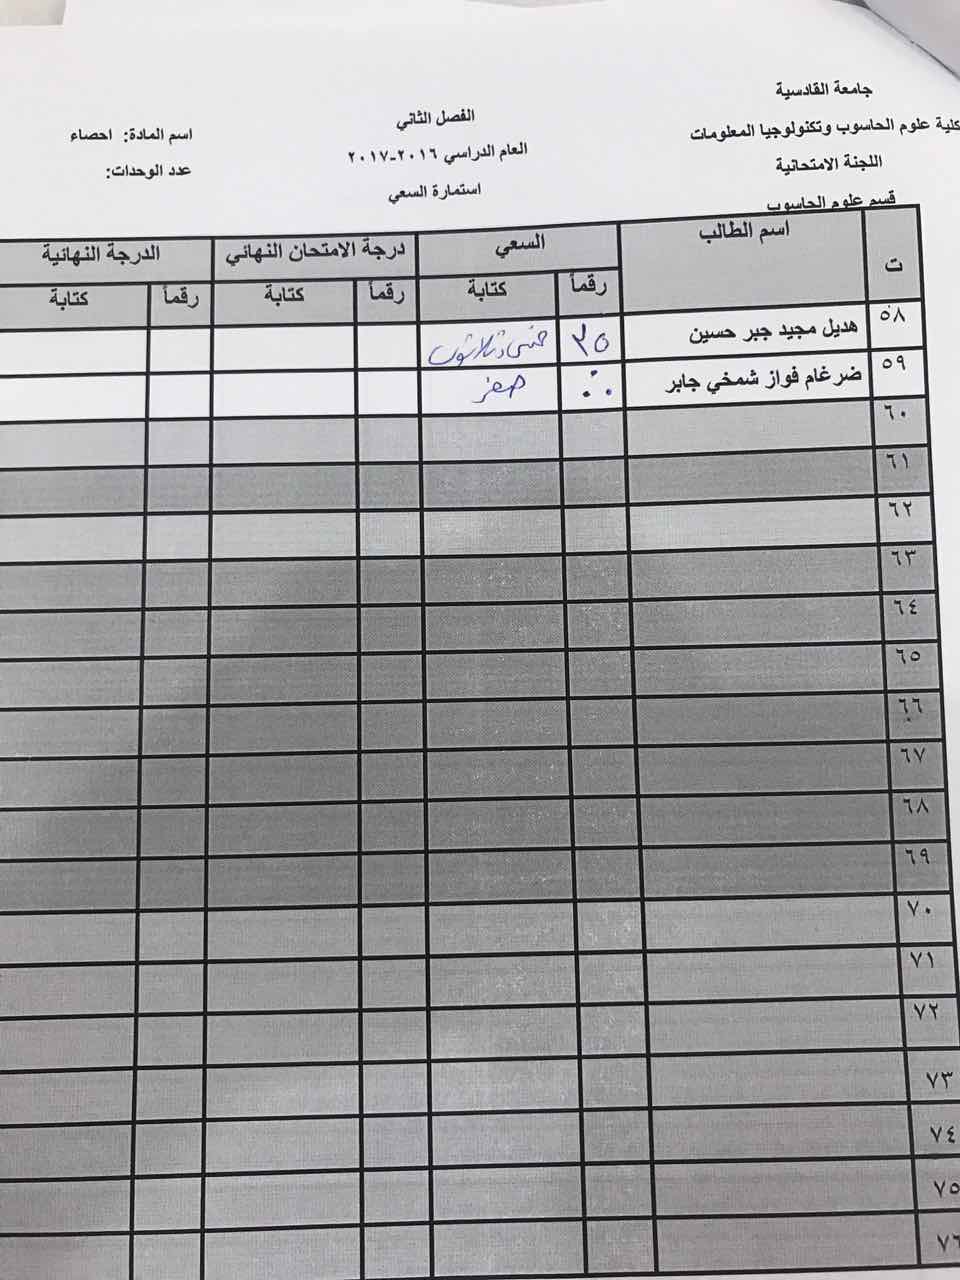 جامعة القادسية
كلية علوم الحاسوب وتكنولوجيا المعلومات
اللجنة الامتحانية
قسم علوم الحاسوب
الفصل الثاني
العام الدراسي ٢٠١٦-٢٠١٧
استمارة السعي
اسم المادة: احصاء
عدد الوحدات:
ت اسم الطالب السعي درجة الامتحان النهائي الدرجة النهائية
رقماً كتابة رقماً كتابة رقماً كتابة
٥٨ هديل مجيد جبر حسين ٣٥ خمس وثلاثون
٥٩ ضرغام فواز شمخي جابر ٠٠ صفر
٦٠
٦١
٦٢
٦٣
٦٤
٦٥
٦٦
٦٧
٦٨
٦٩
٧٠
٧١
٧٢
٧٣
٧٤
٧٥
٧٦